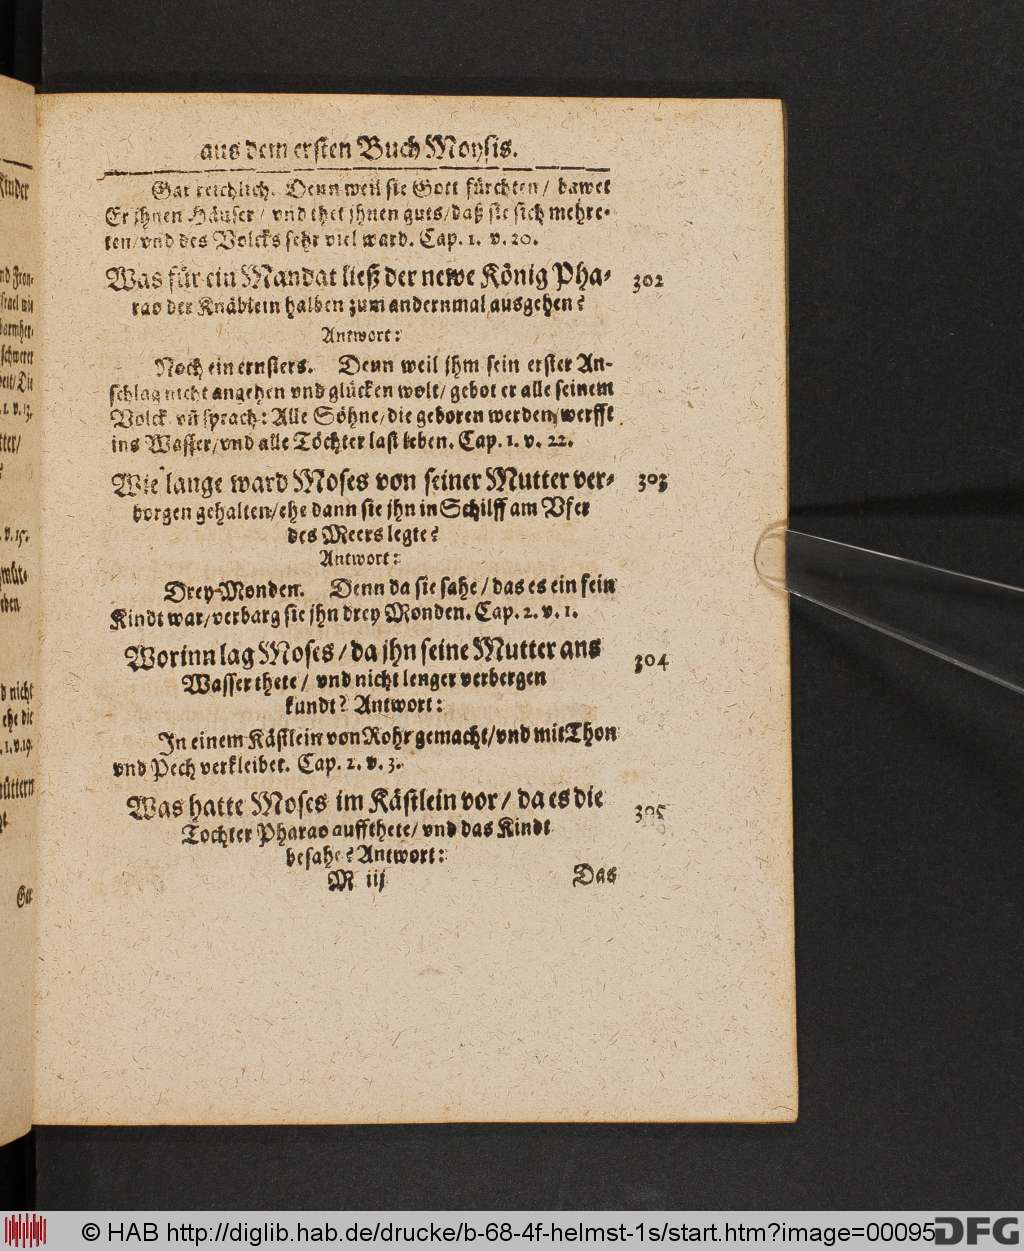 aus dem ersten Buch Moysis.
Gar reichlich. Denn weil sie Gott fürchten / bawet
Er jhnen Häuser / vnd thet jhnen guts / daß sie sich mehre-
ten / vnd des Volcks sehr viel ward. Cap. 1. v. 20.
Was für ein Mandat ließ der newe König Pha- 302
rao der Knäblein halben zum andernmal ausgehen?
Antwort:
Noch ein ernsters. Denn weil jhm sein erster An-
schlag nicht angehen vnd glücken wolt / gebot er alle seinem
Volck vn̄ sprach: Alle Söhne / die geboren werden / werfft
ins Wasser / vnd alle Töchter last leben. Cap. 1. v. 22.
Wie lange ward Moses von seiner Mutter ver- 303
borgen gehalten / ehe dann sie jhn in Schilff am Vfer
des Meers legte?
Antwort:
Drey Monden. Denn da sie sahe / das es ein fein
Kindt war / verbarg sie jhn drey Monden. Cap. 2. v. 1.
Worinn lag Moses / da jhn seine Mutter ans 304
Wasser thete / vnd nicht lenger verbergen
kundt? Antwort:
In einem Kästlein von Rohr gemacht / vnd mit Thon
vnd Pech verkleibet. Cap. 2. v. 3.
Was hatte Moses im Kästlein vor / da es die 305
Tochter Pharao auffthete / vnd das Kindt
besahe? Antwort:
M iij Das
© HAB http://diglib.hab.de/drucke/b-68-4f-helmst-1s/start.htm?image=00095
DFG